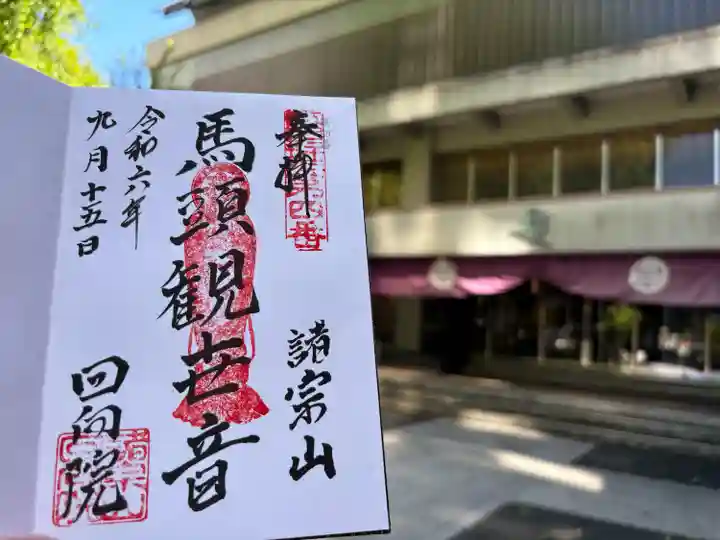 奉拝
諸宗山
馬頭観世音
令和六年
九月十五日
回向院